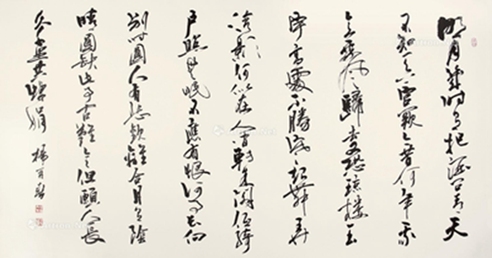 明月几时有把酒问青天
不知天上宫阙今昔何年我
欲乘风归去又恐琼楼玉
宇高处不胜寒起舞弄
清影何似在人间转朱阁低绮
户照无眠不应有恨何事长向
别时圆人有悲欢离合月有阴
晴圆缺此事古难全但愿人长
久千里共婵娟